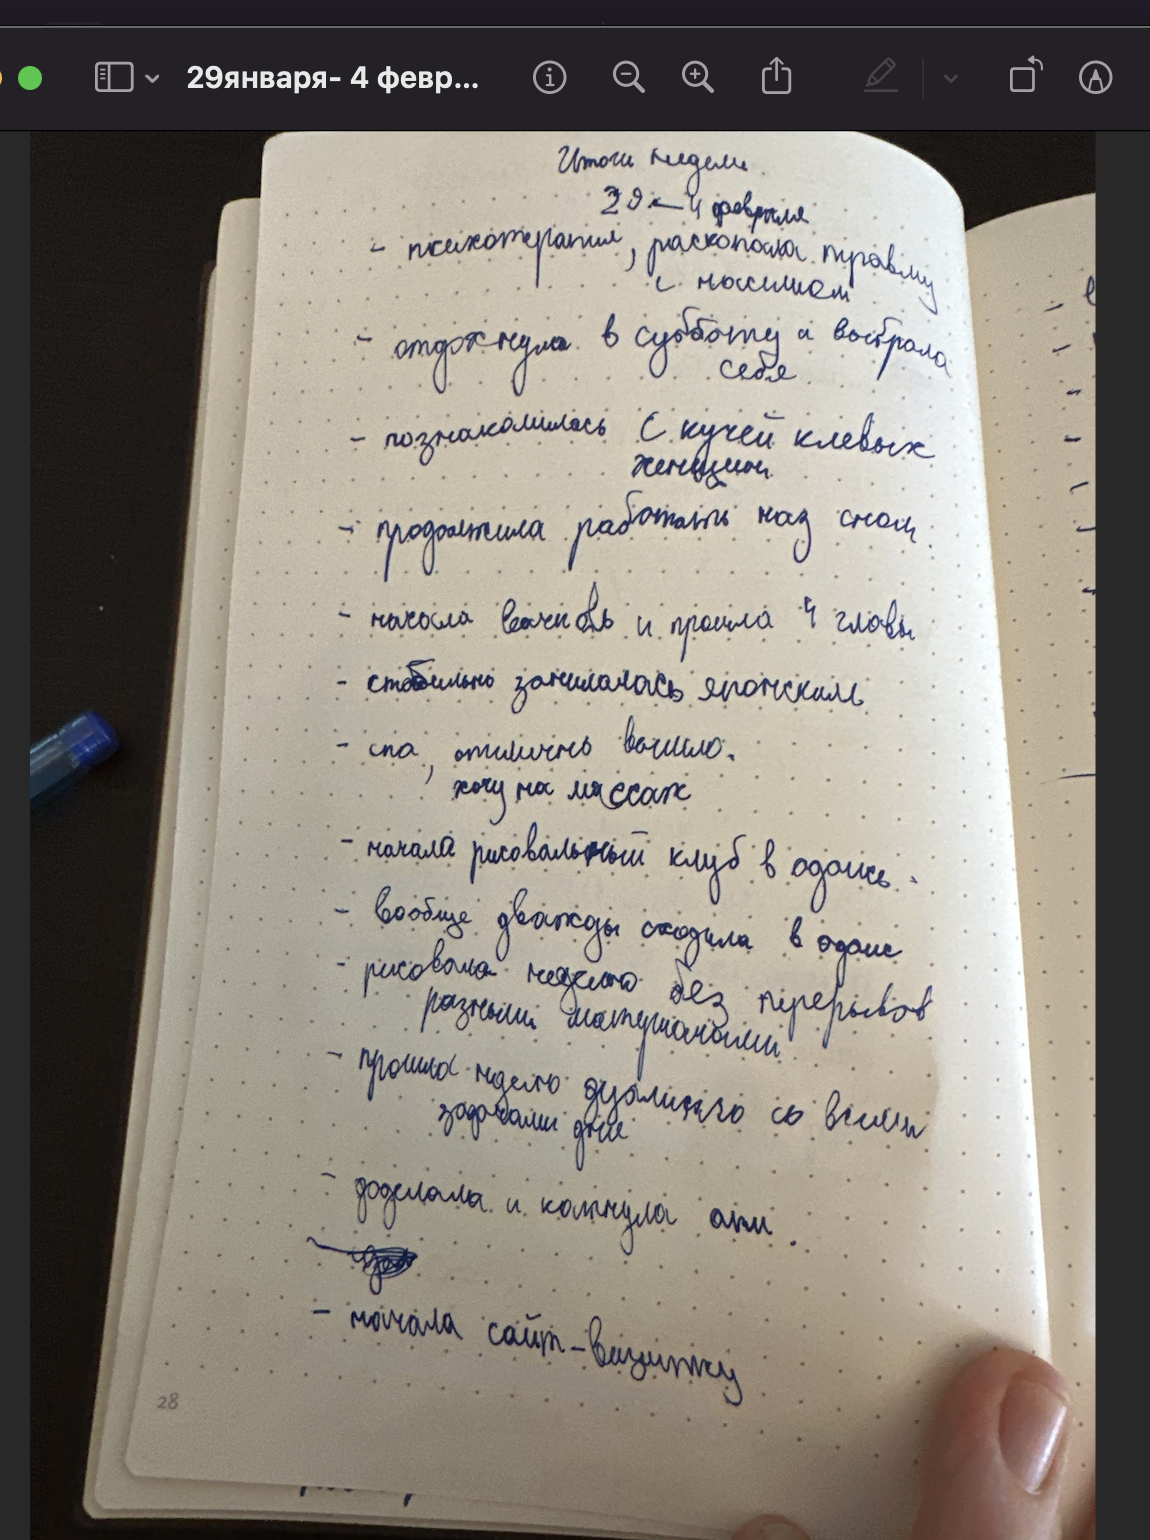 29января- 4 февр...
Итоги недели
29 – 4 февраля
- психотерапия, раскопала травму
с насилием
- отдохнула в субботу и выбрала
себя
- познакомилась с кучей клевых
женщин
- продолжила работать над сном
- начала вновь и прошла 4 главы
- стабильно занималась японским
- спа, отлично вышло.
хочу на массаж
- начала рисовальный клуб в оазисе.
- вообще дважды сходила в оазис
- рисовала неделю без перерывов
разными материалами
- прошла неделю дуолинго со всеми
задачами дня
- доделала и
- начала сайт-визитку
28